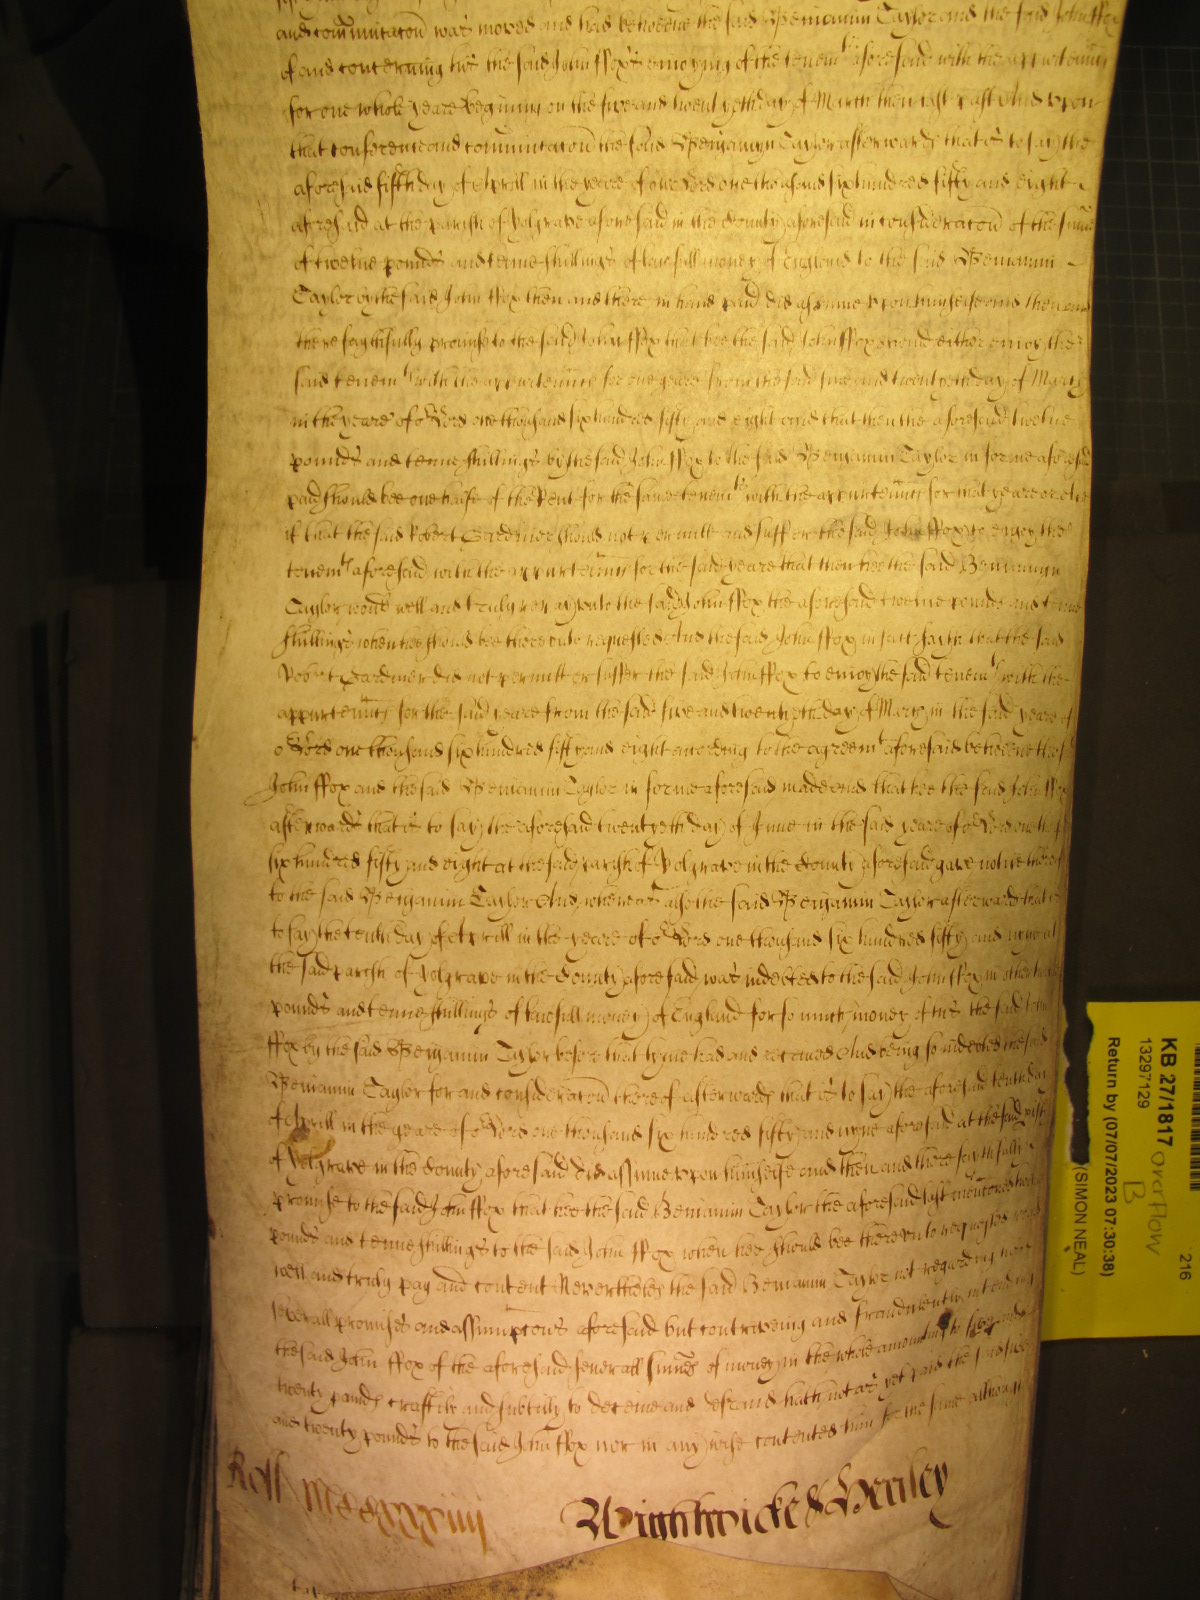 and com̄unicac̄on was moved and had betweene the said Beniamin Taylor and the said John ffox
of and concerning his the said John ffox's enioying of the tenemt aforesaid with the appurtenn̄cs
for one whole yeare begining on the five and twentyeth day of March then last past And upon
that conference and com̄unicac̄on the said Beniamyn Taylor afterwards that is to say the
aforesaid fifth day of Aprill in the yeare of our Lord one thousand six hundred fifty and eight
aforesaid at the parish of Polgrave aforesaid in the County aforesaid in considerac̄on of the sum̄e
of twelve pounds and tenne shillings of lawfull money of England to the said Beniamin
Taylor by the said John ffox then and there in hand paid did assume upon himselfe and then and
there faythfully promise to the said John ffox that hee the said John ffox should either enioy the
said tenemt with the appurtenn̄cs for one yeare from the said five and twentyeth day of March
in the yeare of or Lord one thousand six hundred fifty and eight and that then the aforesaid twelve
pounds and tenne shillings by the said John ffox to the said Beniamin Taylor in forme aforesaid
paid should bee one halfe of the Rent for the same tenemt with the appurtenn̄cs for that yeare or else
if that the said Robert Gardiner should not permitt and suffer the said John ffox to enioy the
tenemt aforesaid with the appurtenn̄cs for the said yeare that then hee the said Beniamyn
Taylor would well and truly repay unto the said John ffox the aforesaid twelve pounds and tenne
shillings when hee should bee thereunto requested And the said John ffox in fact sayth that the said
Robert Gardiner did not permitt or suffer the said John ffox to enioy the said tenemt with the
appurtenn̄cs for the said yeare from the said five and twentyeth day of March in the said yeare of
or Lord one thousand six hundred fifty and eight according to the agreemt aforesaid betweene the sd
John ffox and the said Beniamin Taylor in forme aforesaid made and that hee the said John ffox
afterwards that is to say the aforesaid twentyeth day of June in the said yeare of or Lord one thousand
six hundred fifty and eight at the said parish of Polgrave in the County aforesaid gave notice thereof
to the said Beniamin Taylor And whereas alsoe the said Beniamin Taylor afterwards that is
to say the tenth day of Aprill in the yeare of or Lord one thousand six hundred fifty and nyne at
the said parish of Polgrave in the County aforesaid was indebted to the said John ffox in other twelve
pounds and tenne shillings of lawfull money of England for so much money of his the said John
ffox by the said Beniamin Taylor before that tyme had and received And being so indebted the said
Beniamin Taylor for and considerac̄on thereof afterwards that is to say the aforesaid tenth day
of Aprill in the yeare of or Lord one thousand six hundred fifty and nyne aforesaid at the said parish
of Polgrave in the County aforesaid did assume upon himselfe and then and there faythfully
promise to the said John ffox that hee the said Beniamin Taylor the aforesaid last menc̄oned twelve
pounds and tenne shillings to the said John ffox when hee should bee thereunto requested would
well and truly pay and content Neverthelesse the said Beniamin Taylor not regarding
severall promises and assumpc̄ons aforesaid but contriveing and fraudulently intending
the said John ffox of the aforesaid severall sum̄es of money in the whole amounting to five and
twenty pounds craftily and subtilly to deceive and defraud hath not as yet paid the said five
and twenty pounds to the said John ffox nor in any wise contented him for the same although
Roll Mdcxxxiiij Wightwicke & Henley
KB 27/1817 overflow
B
216
13297129
Return by (07/07/2023 07:30:38)
(SIMON NEAL)